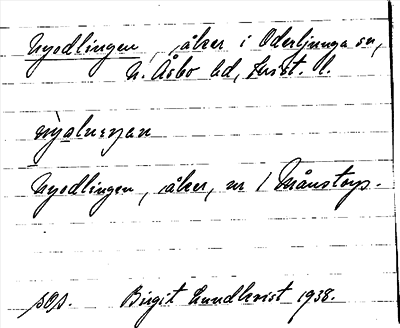 Nyodlingen, åker i Oderljunga sn,
N. Åsbo hd, Krist. l.
Nyodlingen, åker, nr 1 Månstorp.
pop. Birgit Lundkvist 1938.